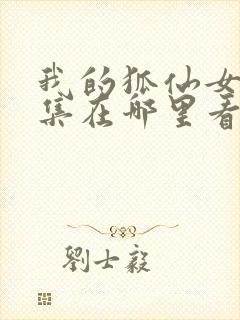 我的狐仙女
集在哪里看
劉士毅